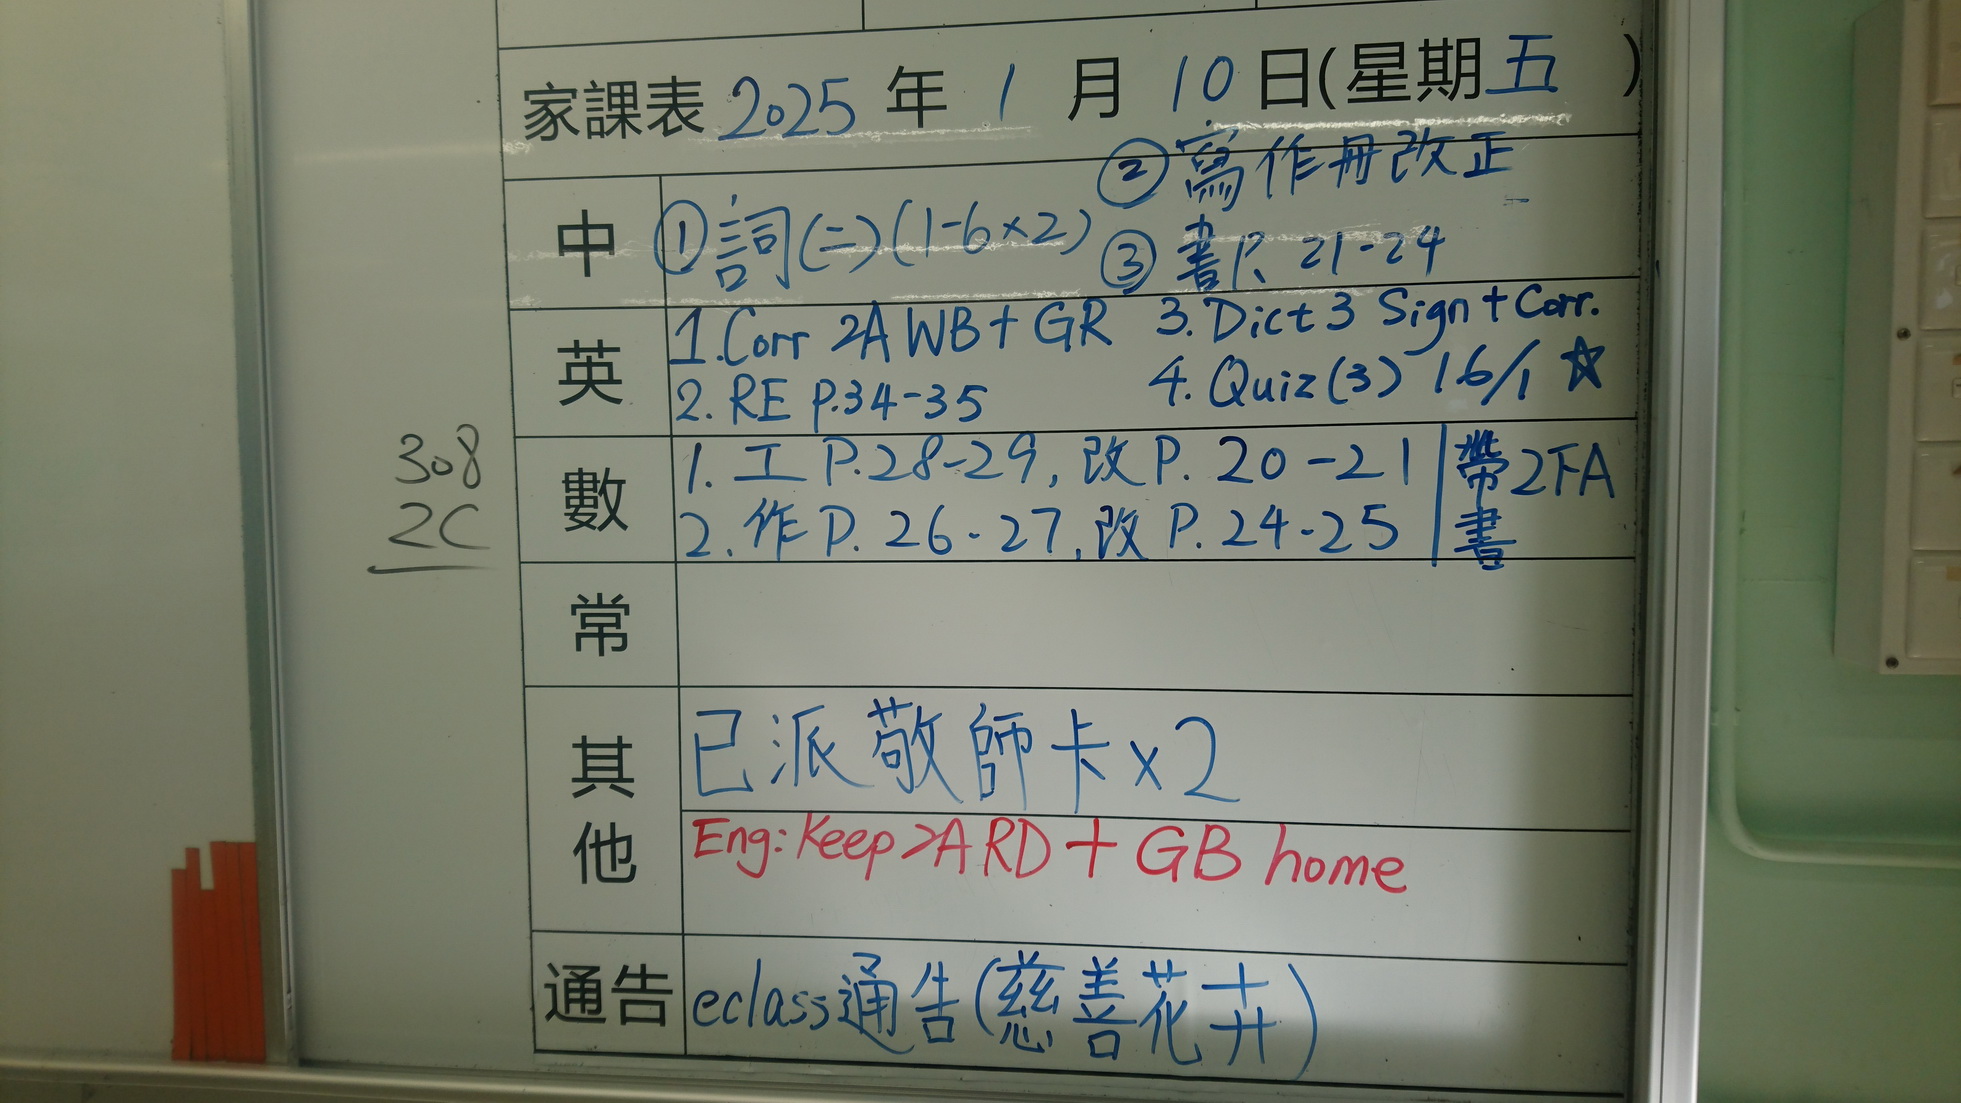 家課表 2025 年 1 月 10 日(星期五)
中 ①詞(二)(1-6×2)
②寫作冊改正
③書P. 21-24
英 1. Corr 2A WB + GR
2. RE P.34-35
3. Dict 3 Sign + Corr.
4. Quiz(3) 16/1 ☆
數 1. 工 P.28-29, 改 P. 20-21
2. 作 P. 26-27, 改 P. 24-25
帶2FA
書
308
2C
常
其他 已派敬師卡×2
Eng: Keep 2A RD + GB home
通告 eclass通告(慈善花卉)